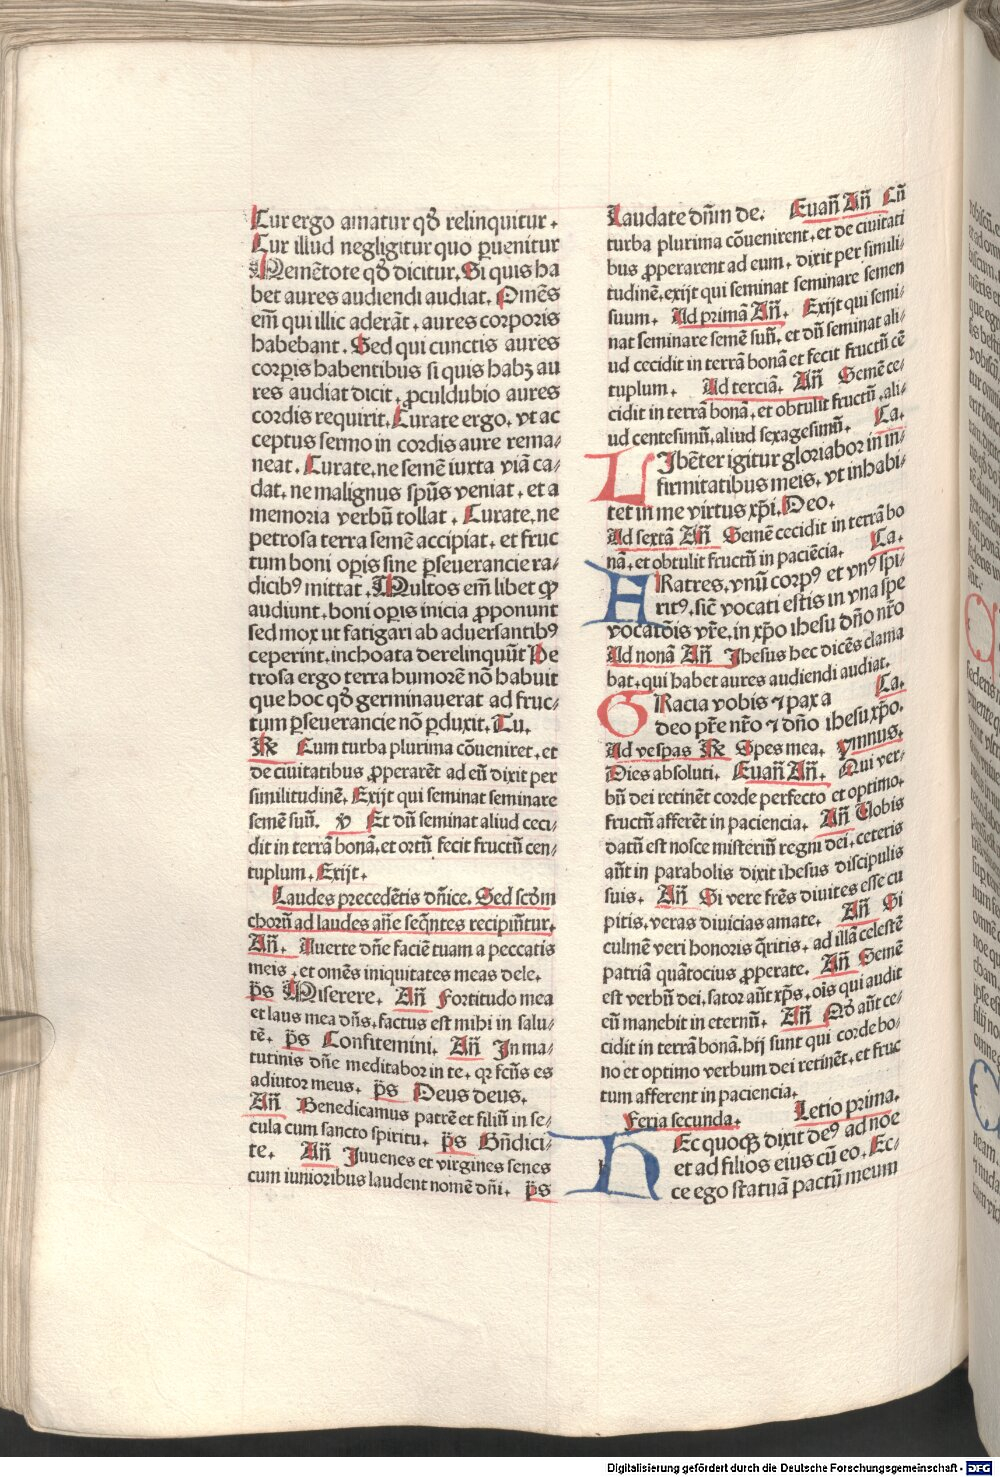 Cur ergo amatur qđ relinquitur.
Cur illud negligitur quo ꝑuenitur
Memētote qđ dicitur. Si quis ha
bet aures audiendi audiat. Omēs
em̄ qui illic aderāt, aures corporis
habebant. Sed qui cunctis aures
corꝑis habentibus si quis habꝫ au
res audiat dicit, ꝓculdubio aures
cordis requirit. Curate ergo, vt ac
ceptus sermo in cordis aure rema/
neat. Curate, ne semē iuxta viā ca/
dat, ne malignus spūs veniat, et a
memoria verbū tollat. Curate, ne
petrosa terra semē accipiat, et fruc
tum boni oꝑis sine ꝑseuerancie ra/
dicibꝰ mittat. Multos em̄ libet qꝫ
audiunt, boni oꝑis inicia ꝓponunt
sed mox ut fatigari ab aduersantibꝰ
ceperint, inchoata derelinquūt Pe
trosa ergo terra humorē nō habuit
que hoc qđ germinauerat ad fruc/
tum ꝑseuerancie nō ꝑduxit. Tu.
R̄e Cum turba plurima cōueniret, et
de ciuitatibus ꝓperarēt ad eū dixit per
similitudinē. Exijt qui seminat seminare
semē suū. v̄ Et dū seminat aliud ceci/
dit in terrā bonā, et ortū fecit fructū cen/
tuplum. Exijt.
Laudes precedētis dn̄ice. Sed scđm
chorū ad laudes an̄e seq̄ntes recipiūtur.
An̄. Auerte dn̄e faciē tuam a peccatis
meis, et omēs iniquitates meas dele.
p̄s Miserere. An̄ Fortitudo mea
et laus mea dn̄s, factus est mihi in salu/
tē. p̄s Confitemini. An̄ In ma/
tutinis dn̄e meditabor in te, qꝛ fc̄us es
adiutor meus. p̄s Deus deus.
An̄ Benedicamus patrē et filiū in se/
cula cum sancto spiritu. p̄s Bn̄dici/
te. An̄ Juuenes et virgines senes
cum iunioribus laudent nomē dn̄i. p̄s
Laudate dn̄m de. Euan̄ An̄ Cū
turba plurima cōuenirent, et de ciuitati
bus ꝓperarent ad eum, dixit per simili/
tudinē, exijt qui seminat seminare semen
suum. Ad primā An̄. Exijt qui semi/
nat seminare semē suū, et dū seminat ali/
ud cecidit in terrā bonā et fecit fructū cē
tuplum. Ad terciā. An̄ Semē ce/
cidit in terrā bonā, et obtulit fructū, ali/
ud centesimū, aliud sexagesimū. Ca.
LIbēter igitur gloriabor in in/
firmitatibus meis, vt inhabi/
tet in me virtus xp̄i. Deo.
Ad sextā An̄ Semē cecidit in terrā bo
nā, et obtulit fructū in paciēcia. Ca.
FRatres, vnū corpꝰ et vnꝰ spi/
ritꝰ, sic̄ vocati estis in vna spe
vocatōis vr̄e, in xp̄o ihesu dn̄o nr̄o
Ad nonā An̄ Jhesus hec dicēs clama
bat, qui habet aures audiendi audiat.
GRacia vobis ⁊ pax a Ca.
deo pr̄e nr̄o ⁊ dn̄o ihesu xp̄o.
Ad vesꝑas R̄e Spes mea. ymnus.
Dies absoluti. Euan̄ An̄. Qui ver/
bū dei retinēt corde perfecto et optimo,
fructū afferēt in paciencia. An̄ Uobis
datū est nosce misteriū regni dei, ceteris
aūt in parabolis dixit ihesus discipulis
suis. An̄ Si vere fr̄es diuites esse cu
pitis, veras diuicias amate. An̄ Si
culmē veri honoris q̄ritis, ad illā celestē
patriā quātocius ꝓperate. An̄ Semē
est verbū dei, sator aūt xp̄s, oīs qui audit
eū manebit in eternū. An̄ Qđ aūt ce/
cidit in terrā bonā, hij sunt qui corde bo/
no et optimo verbum dei retinēt, et fruc
tum afferent in paciencia.
Feria secunda. Letio prima.
HEc quoqꝫ dixit deꝰ ad noe
et ad filios eius cū eo. Ec/
ce ego statuā pactū meum
Digitalisierung gefördert durch die Deutsche Forschungsgemeinschaft - DFG